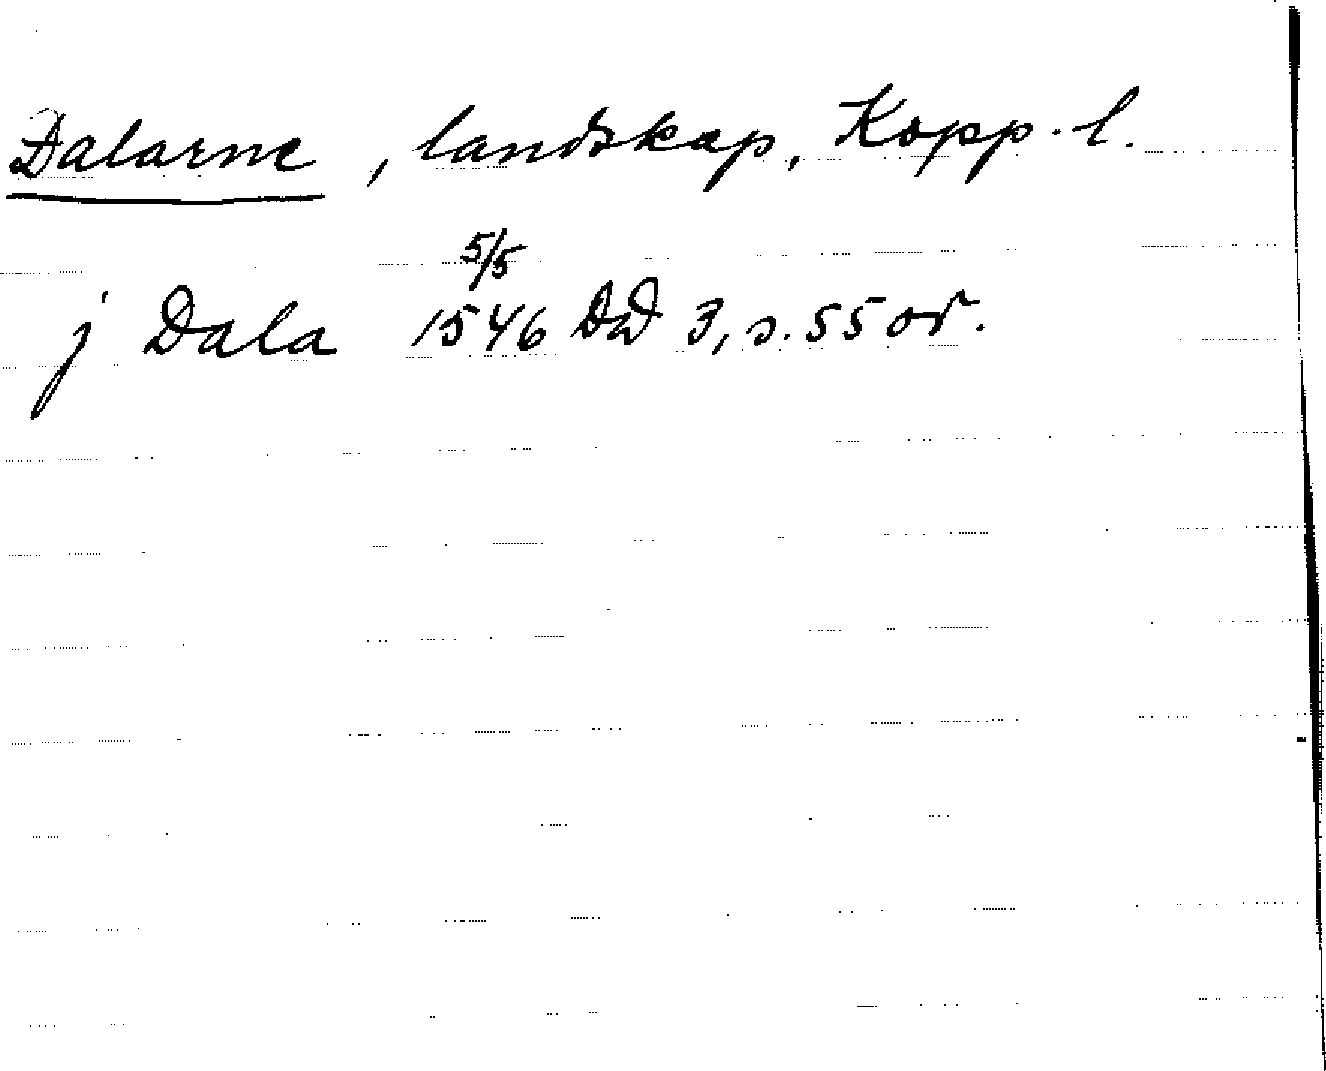 Dalarne, landskap, Kopp. l.
5/5
j Dala 1546 DD 3, s. 55 or.